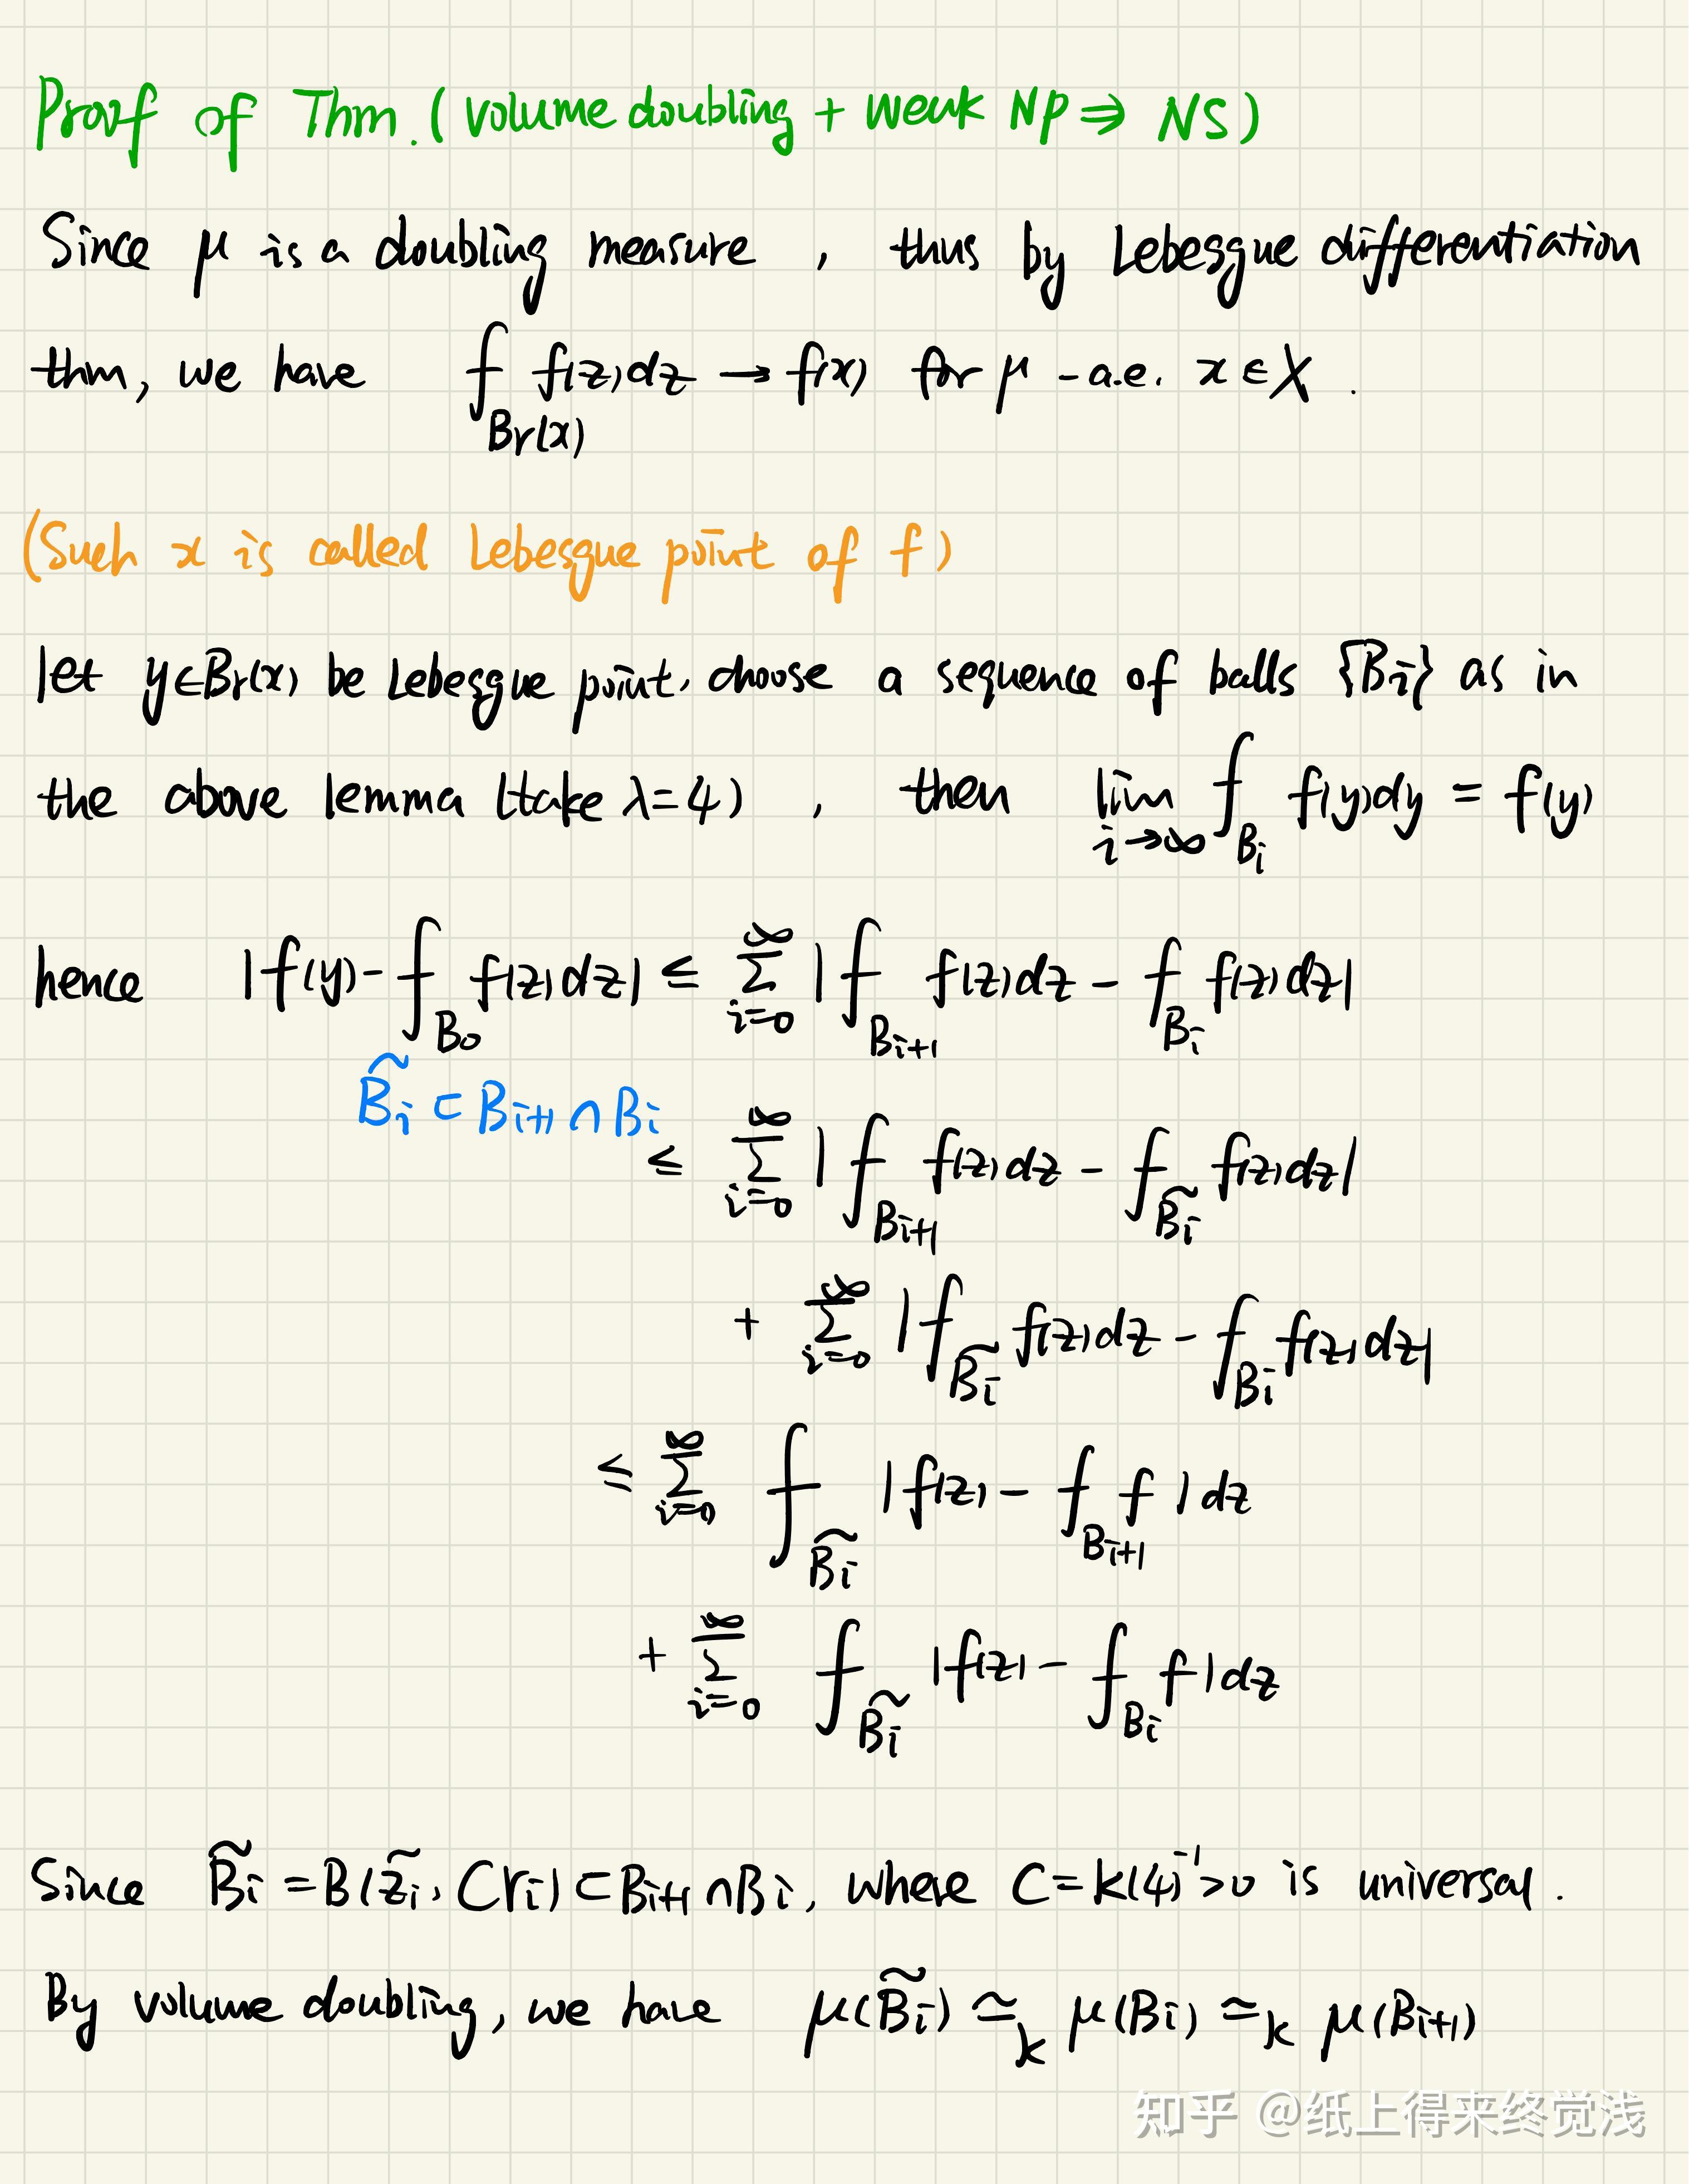 Proof of Thm. (volume doubling + weak NP ⇒ NS)
Since μ is a doubling measure , thus by Lebesgue differentiation
thm, we have ⨍_{Br(x)} f(z)dz → f(x) for μ -a.e. x ∈ X .
(Such x is called Lebesgue point of f)
let y∈Br(x) be Lebesgue point, choose a sequence of balls {Bi} as in
the above lemma (take λ=4) , then lim_{i→∞} ⨍_{Bi} f(y)dy = f(y)
hence |f(y) - ⨍_{B0} f(z)dz| ≤ ∑_{i=0}^{∞} |⨍_{Bi+1} f(z)dz - ⨍_{Bi} f(z)dz|
B̃i ⊂ Bi+1 ∩ Bi
≤ ∑_{i=0}^{∞} |⨍_{Bi+1} f(z)dz - ⨍_{B̃i} f(z)dz|
+ ∑_{i=0}^{∞} |⨍_{B̃i} f(z)dz - ⨍_{Bi} f(z)dz|
≤ ∑_{i=0}^{∞} ⨍_{B̃i} |f(z) - ⨍_{Bi+1} f | dz
+ ∑_{i=0}^{∞} ⨍_{B̃i} |f(z) - ⨍_{Bi} f | dz
Since B̃i = B(z̃i, Cri) ⊂ Bi+1 ∩ Bi, where C = k(4)^{-1} > 0 is universal .
By volume doubling, we have μ(B̃i) ≃_k μ(Bi) ≃_k μ(Bi+1)
知乎 @纸上得来终觉浅